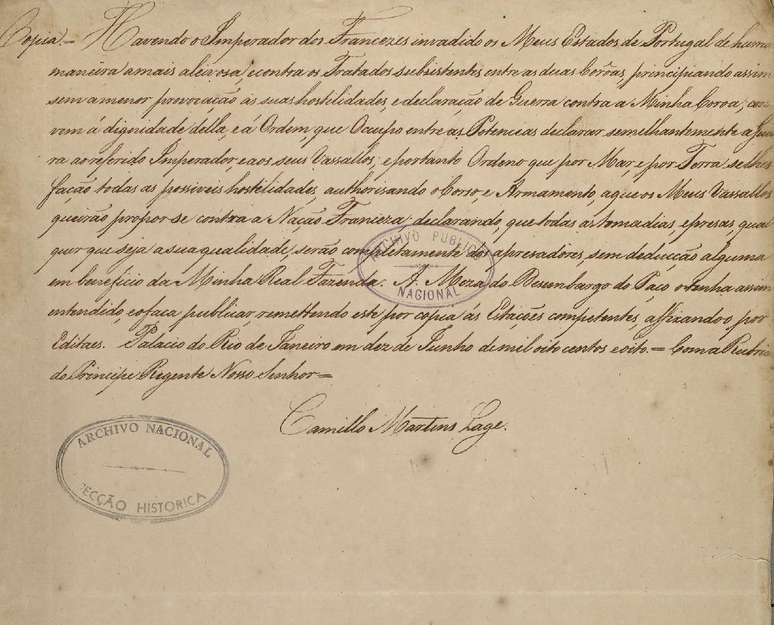 Copia = Havendo o Imperador dos Francezes invadido os Meus Estados de Portugal de huma
maneira a mais aleivosa e contra os Tratados subsistentes entre as duas Corôas, principiando assim
sem a menor provocação as suas hostilidades, e declaração de Guerra contra a Minha Coroa; con-
vem á dignidade della, e á Ordem, que Occupo entre as Potencias declarar semelhantemente a Guer-
ra ao referido Imperador, e aos seus Vassallos; e portanto Ordeno que por Mar, e por Terra se lhes
fação todas as possiveis hostilidades, authorisando o Corso, e Armamento, a que os Meus Vassallos
queirão propor-se contra a Nação Franceza; declarando, que todas as tomadias, e presas qual-
quer que seja a sua qualidade, serão completamente dos apresadores, sem deducção alguma
em beneficio da Minha Real Fazenda. A Meza do Desembargo do Paço o tenha assim
entendido, e o faça publicar remettendo este por copia ás Estações competentes, e affixando-o por
Editaes. Palacio do Rio de Janeiro em dez de Junho de mil oito centos e oito. = Com a Rubrica
do Principe Regente Nosso Senhor =
Camillo Martins Lage.
ARCHIVO PUBLICO
NACIONAL
ARCHIVO NACIONAL
SECÇÃO HISTORICA